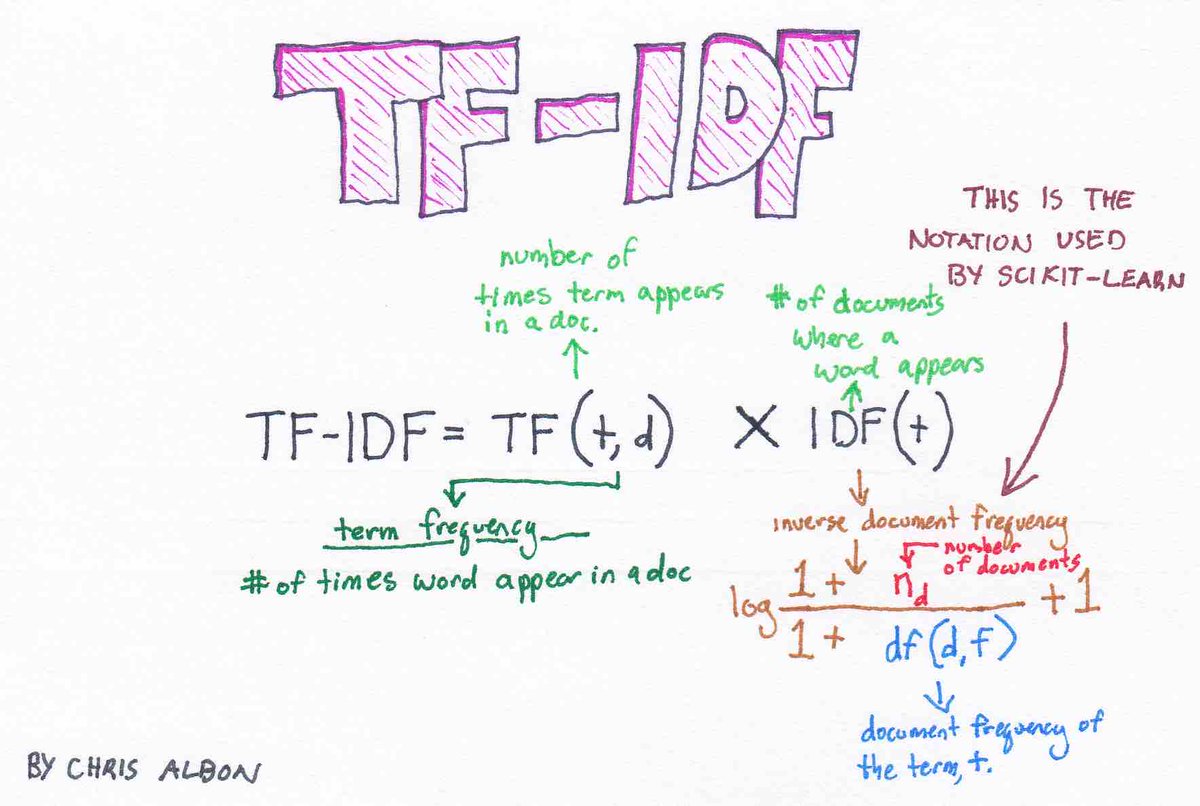 TF-IDF
THIS IS THE
NOTATION USED
BY SCIKIT-LEARN
number of
times term appears
in a doc.
# of documents
where a
word appears
TF-IDF = TF(t, d) X IDF(t)
term frequency
# of times word appear in a doc
inverse document frequency
number
of documents
log 1 + n_d / 1 + df(d, f) + 1
document frequency of
the term, t.
BY CHRIS ALBON